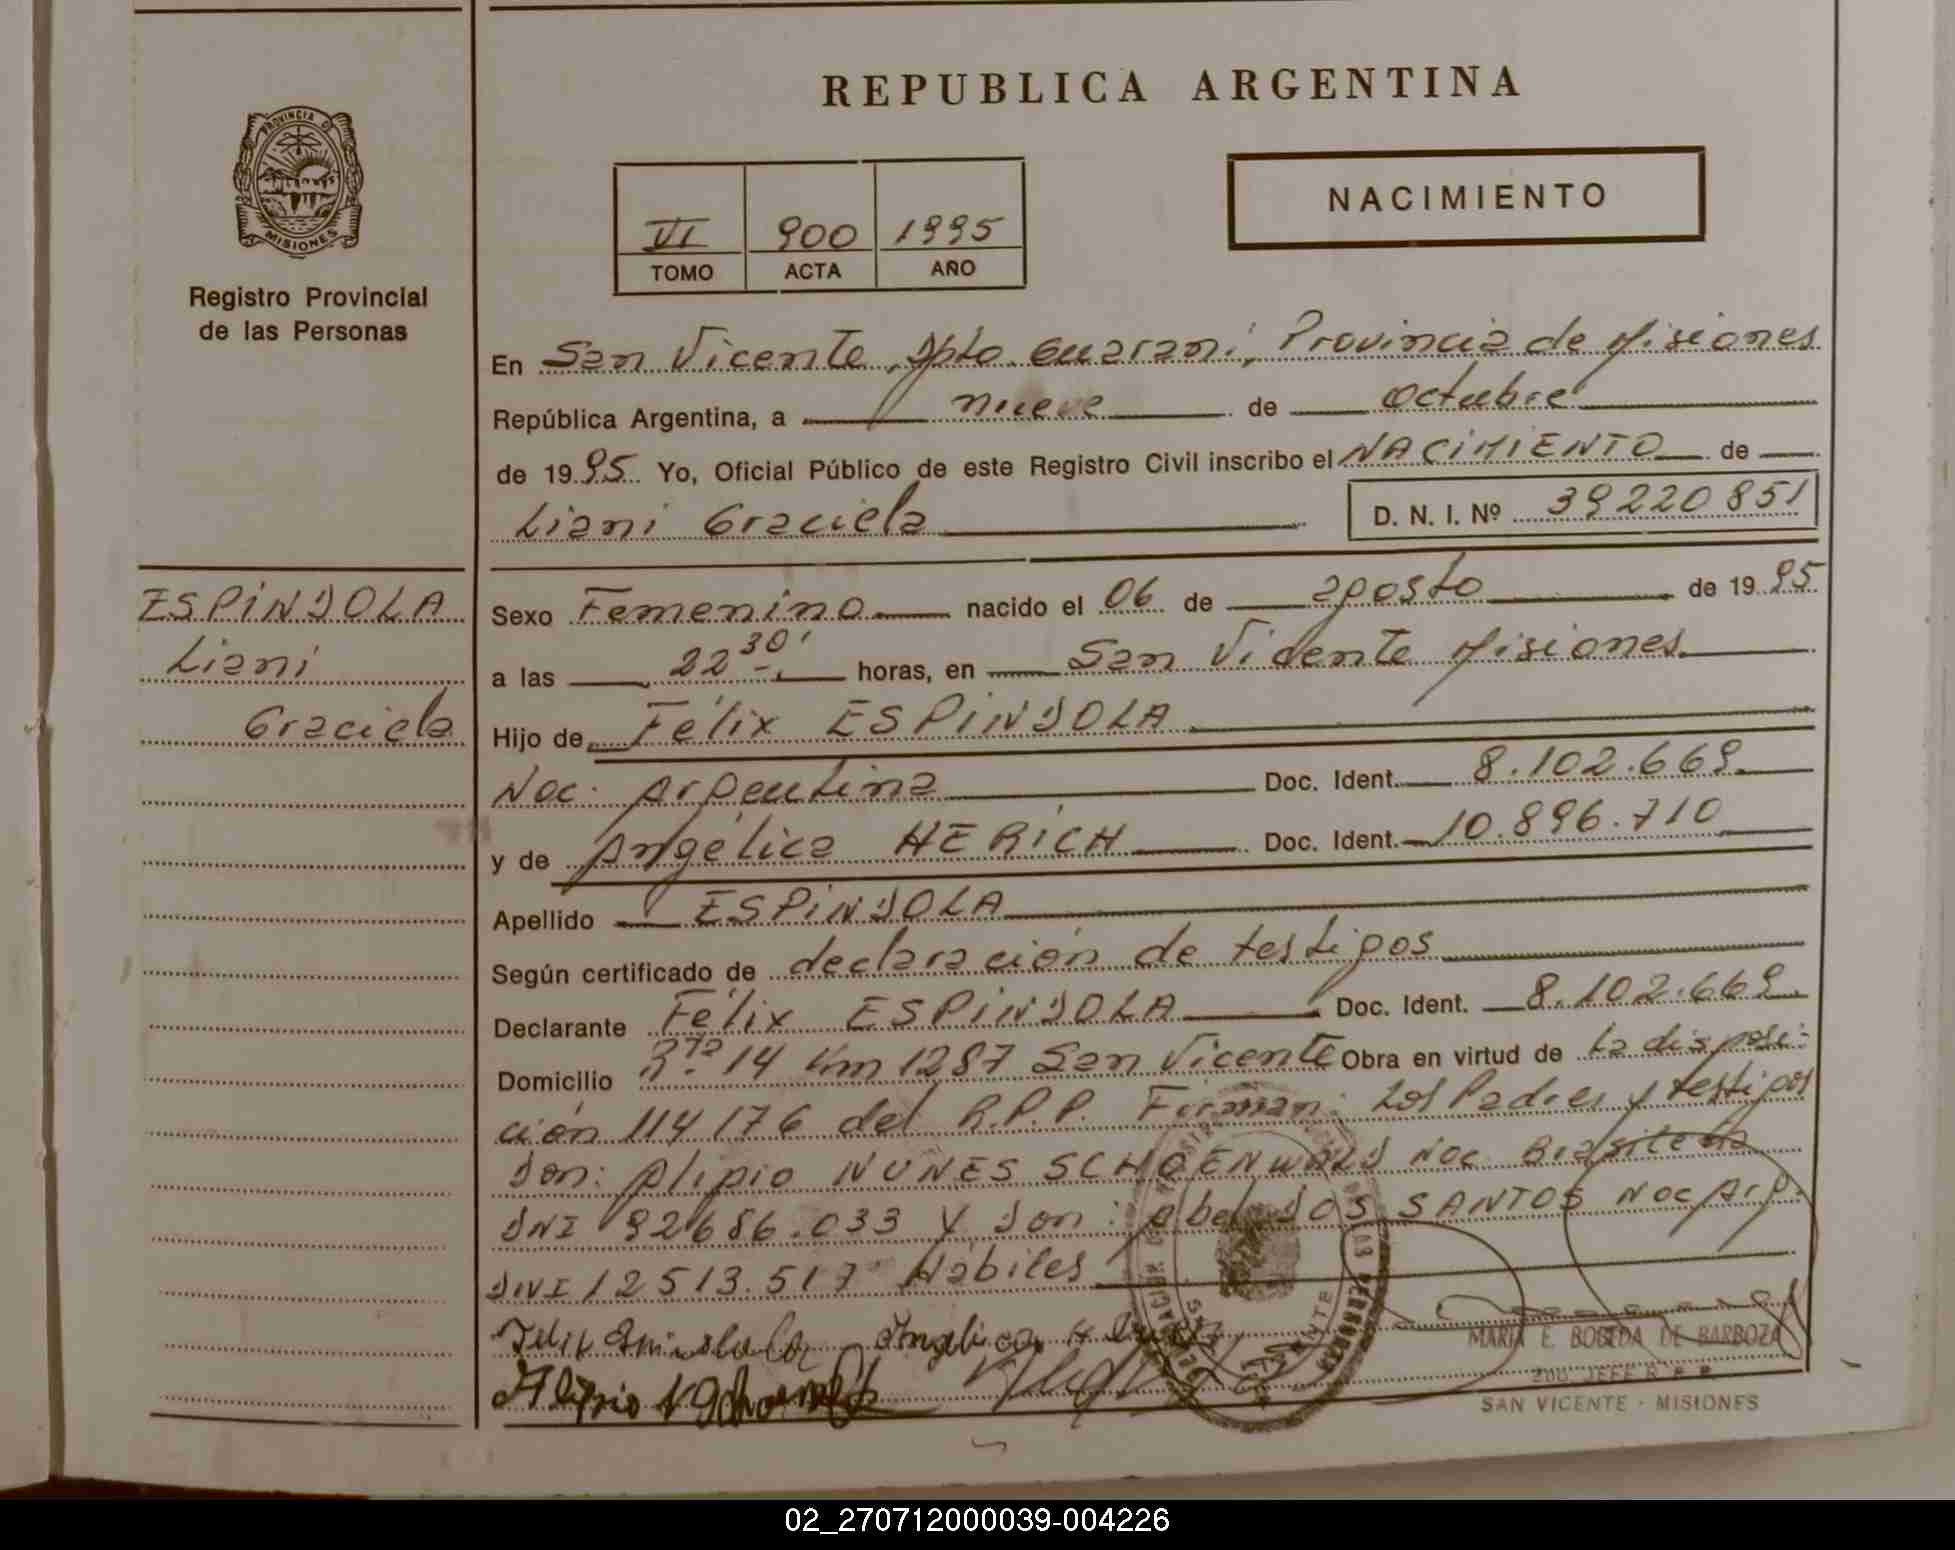 REPUBLICA ARGENTINA
PROVINCIA DE
MISIONES
Registro Provincial
de las Personas
VI 900 1995
TOMO ACTA AÑO
NACIMIENTO
En San Vicente, Dpto. Guaraní, Provincia de Misiones
República Argentina, a nueve de octubre
de 1995 Yo, Oficial Público de este Registro Civil inscribo el NACIMIENTO de
Liani Graciela D. N. I. Nº 39220851
ESPINDOLA
Liani
Graciela
Sexo Femenino nacido el 06 de agosto de 1995
a las 22 30' horas, en San Vicente Misiones
Hijo de Félix ESPINDOLA
Nac. Argentina Doc. Ident. 8.102.669
y de Angélica HERICH Doc. Ident. 10.896.710
Apellido ESPINDOLA
Según certificado de declaración de testigos
Declarante Félix ESPINDOLA Doc. Ident. 8.102.669
Domicilio Rta 14 Km 1287 San Vicente Obra en virtud de la disposi-
ción 114/76 del R.P.P. Firman: Los Padres y testigos
Don: Alipio NUNES SCHOENWALD Nac Brasileña
DNI 92686.033 y Don: Abel DOS SANTOS Nac Arg.
DNI 12513.517 Hábiles
MARIA E. BOBEDA DE BARBOZA
2DO. JEFE R.P.P.
SAN VICENTE - MISIONES
02_270712000039-004226